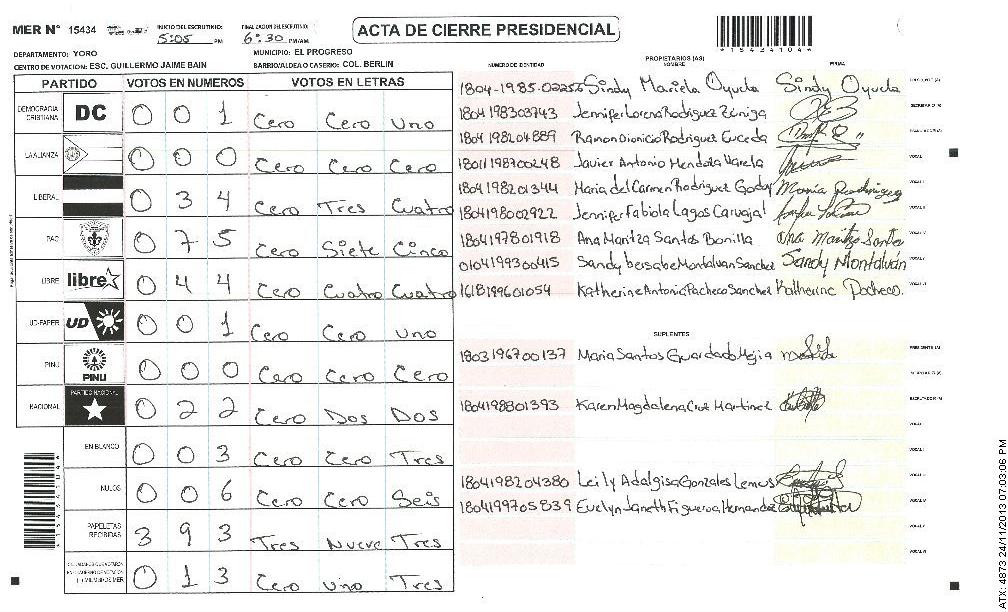 MER N° 15434 INICIO DEL ESCRUTINIO: 5:05 PM FINALIZACION DEL ESCRUTINIO: 6:30 PM/AM
ACTA DE CIERRE PRESIDENCIAL
DEPARTAMENTO: YORO MUNICIPIO: EL PROGRESO
CENTRO DE VOTACION: ESC. GUILLERMO JAIME BAIN BARRIO/ALDEA O CASERIO: COL. BERLIN
PARTIDO VOTOS EN NUMEROS VOTOS EN LETRAS
DEMOCRACIA CRISTIANA DC 0 0 1 Cero Cero Uno
LA ALIANZA 0 0 0 Cero Cero Cero
LIBERAL 0 3 4 Cero Tres Cuatro
PAC 0 7 5 Cero Siete Cinco
LIBRE libre 0 4 4 Cero Cuatro Cuatro
UD-FAPER UD 0 0 1 Cero Cero Uno
PINU PINU 0 0 0 Cero Cero Cero
NACIONAL PARTIDO NACIONAL 0 2 2 Cero Dos Dos
EN BLANCO 0 0 3 Cero Cero Tres
NULOS 0 0 6 Cero Cero Seis
PAPELETAS RECIBIDAS 3 9 3 Tres Nueve Tres
MIEMBROS MER 0 1 3 Cero Uno Tres
PROPIETARIOS (AS)
NUMERO DE IDENTIDAD NOMBRE FIRMA
1804-1985-02256 Sindy Mariela Oyuela Sindy Oyuela
1804198303743 Jennifer Lorena Rodriguez Zúniga
1804198204889 Ramon Dionicio Rodriguez Euceda
1801198700248 Javier Antonio Mendoza Varela
1804198201344 Maria del Carmen Rodriguez Godoy Maria Rodriguez
1804198002922 Jennifer Fabiola Lagos Carvajal
1804197801918 Ana Maritza Santos Bonilla Ana Maritza Santos
0104199300415 Sandy bersabe Montalvan Sanchez Sandy Montalván
1618199601054 Katherine Antonia Pacheco Sanchez Katherine Pacheco.
SUPLENTES
1803196700137 Maria Santos Guardado Mejia
1804198801393 Karen Magdalena Cruz Martinez
1804198204380 Leily Adalgisa Gonzales Lemus
1804199705839 Evelyn Janeth Figueroa Hernandez
ATX: 4873 24/11/2013 07:03:06 PM